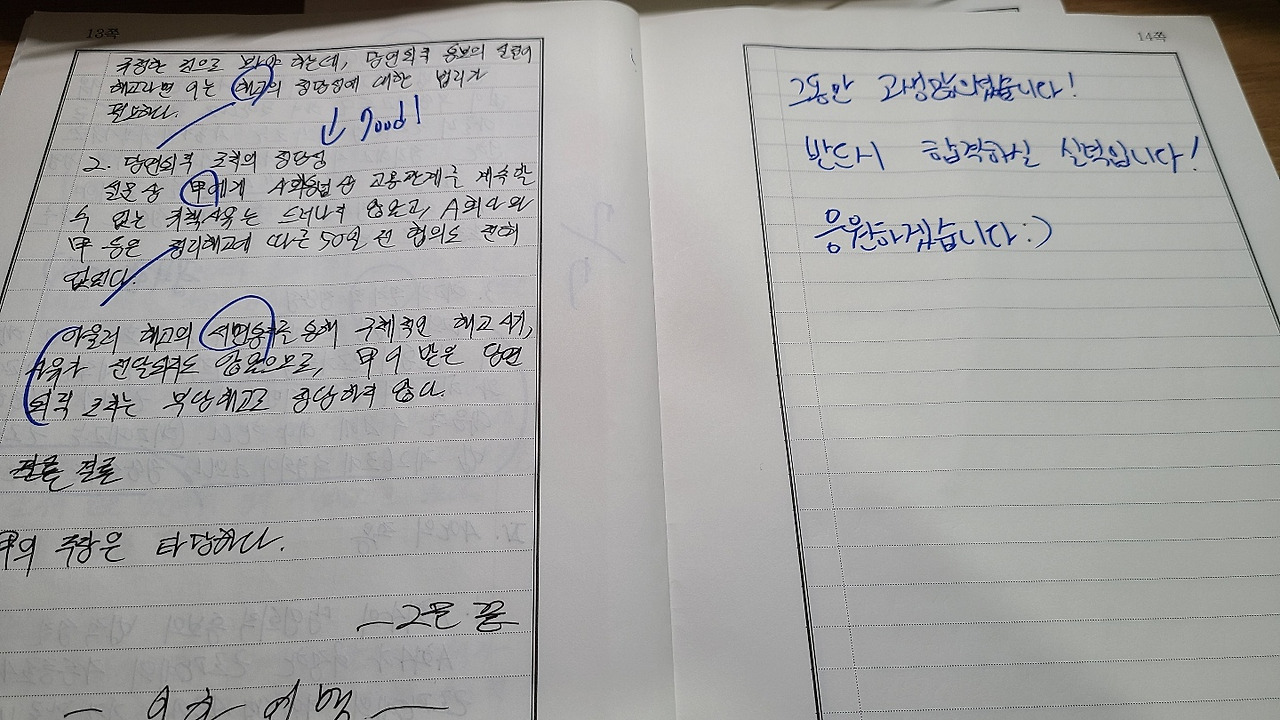 13쪽
규정한 것으로 봐야 하는데, 당연퇴직 통보의 실질이
해고라면 이는 해고의 정당성에 대한 법리가
필요하다.
↓ Good!
2. 당연퇴직 조치의 정당성
설문상 甲에게 사회통념상 고용관계를 계속할
수 없는 귀책사유는 드러나지 않았고, A회사와
甲 등은 정리해고에 따른 50일 전 협의도 전혀
없었다.
아울러 해고의 서면통지를 통해 구체적인 해고 시기,
사유가 전달되지도 않았으므로, 甲이 받은 당연
퇴직 조치는 부당해고로 정당하지 않다.
결론
甲의 주장은 타당하다.
끝
이하 여백
14쪽
그동안 고생많으셨습니다!
반드시 합격하실 실력입니다!
응원하겠습니다:)